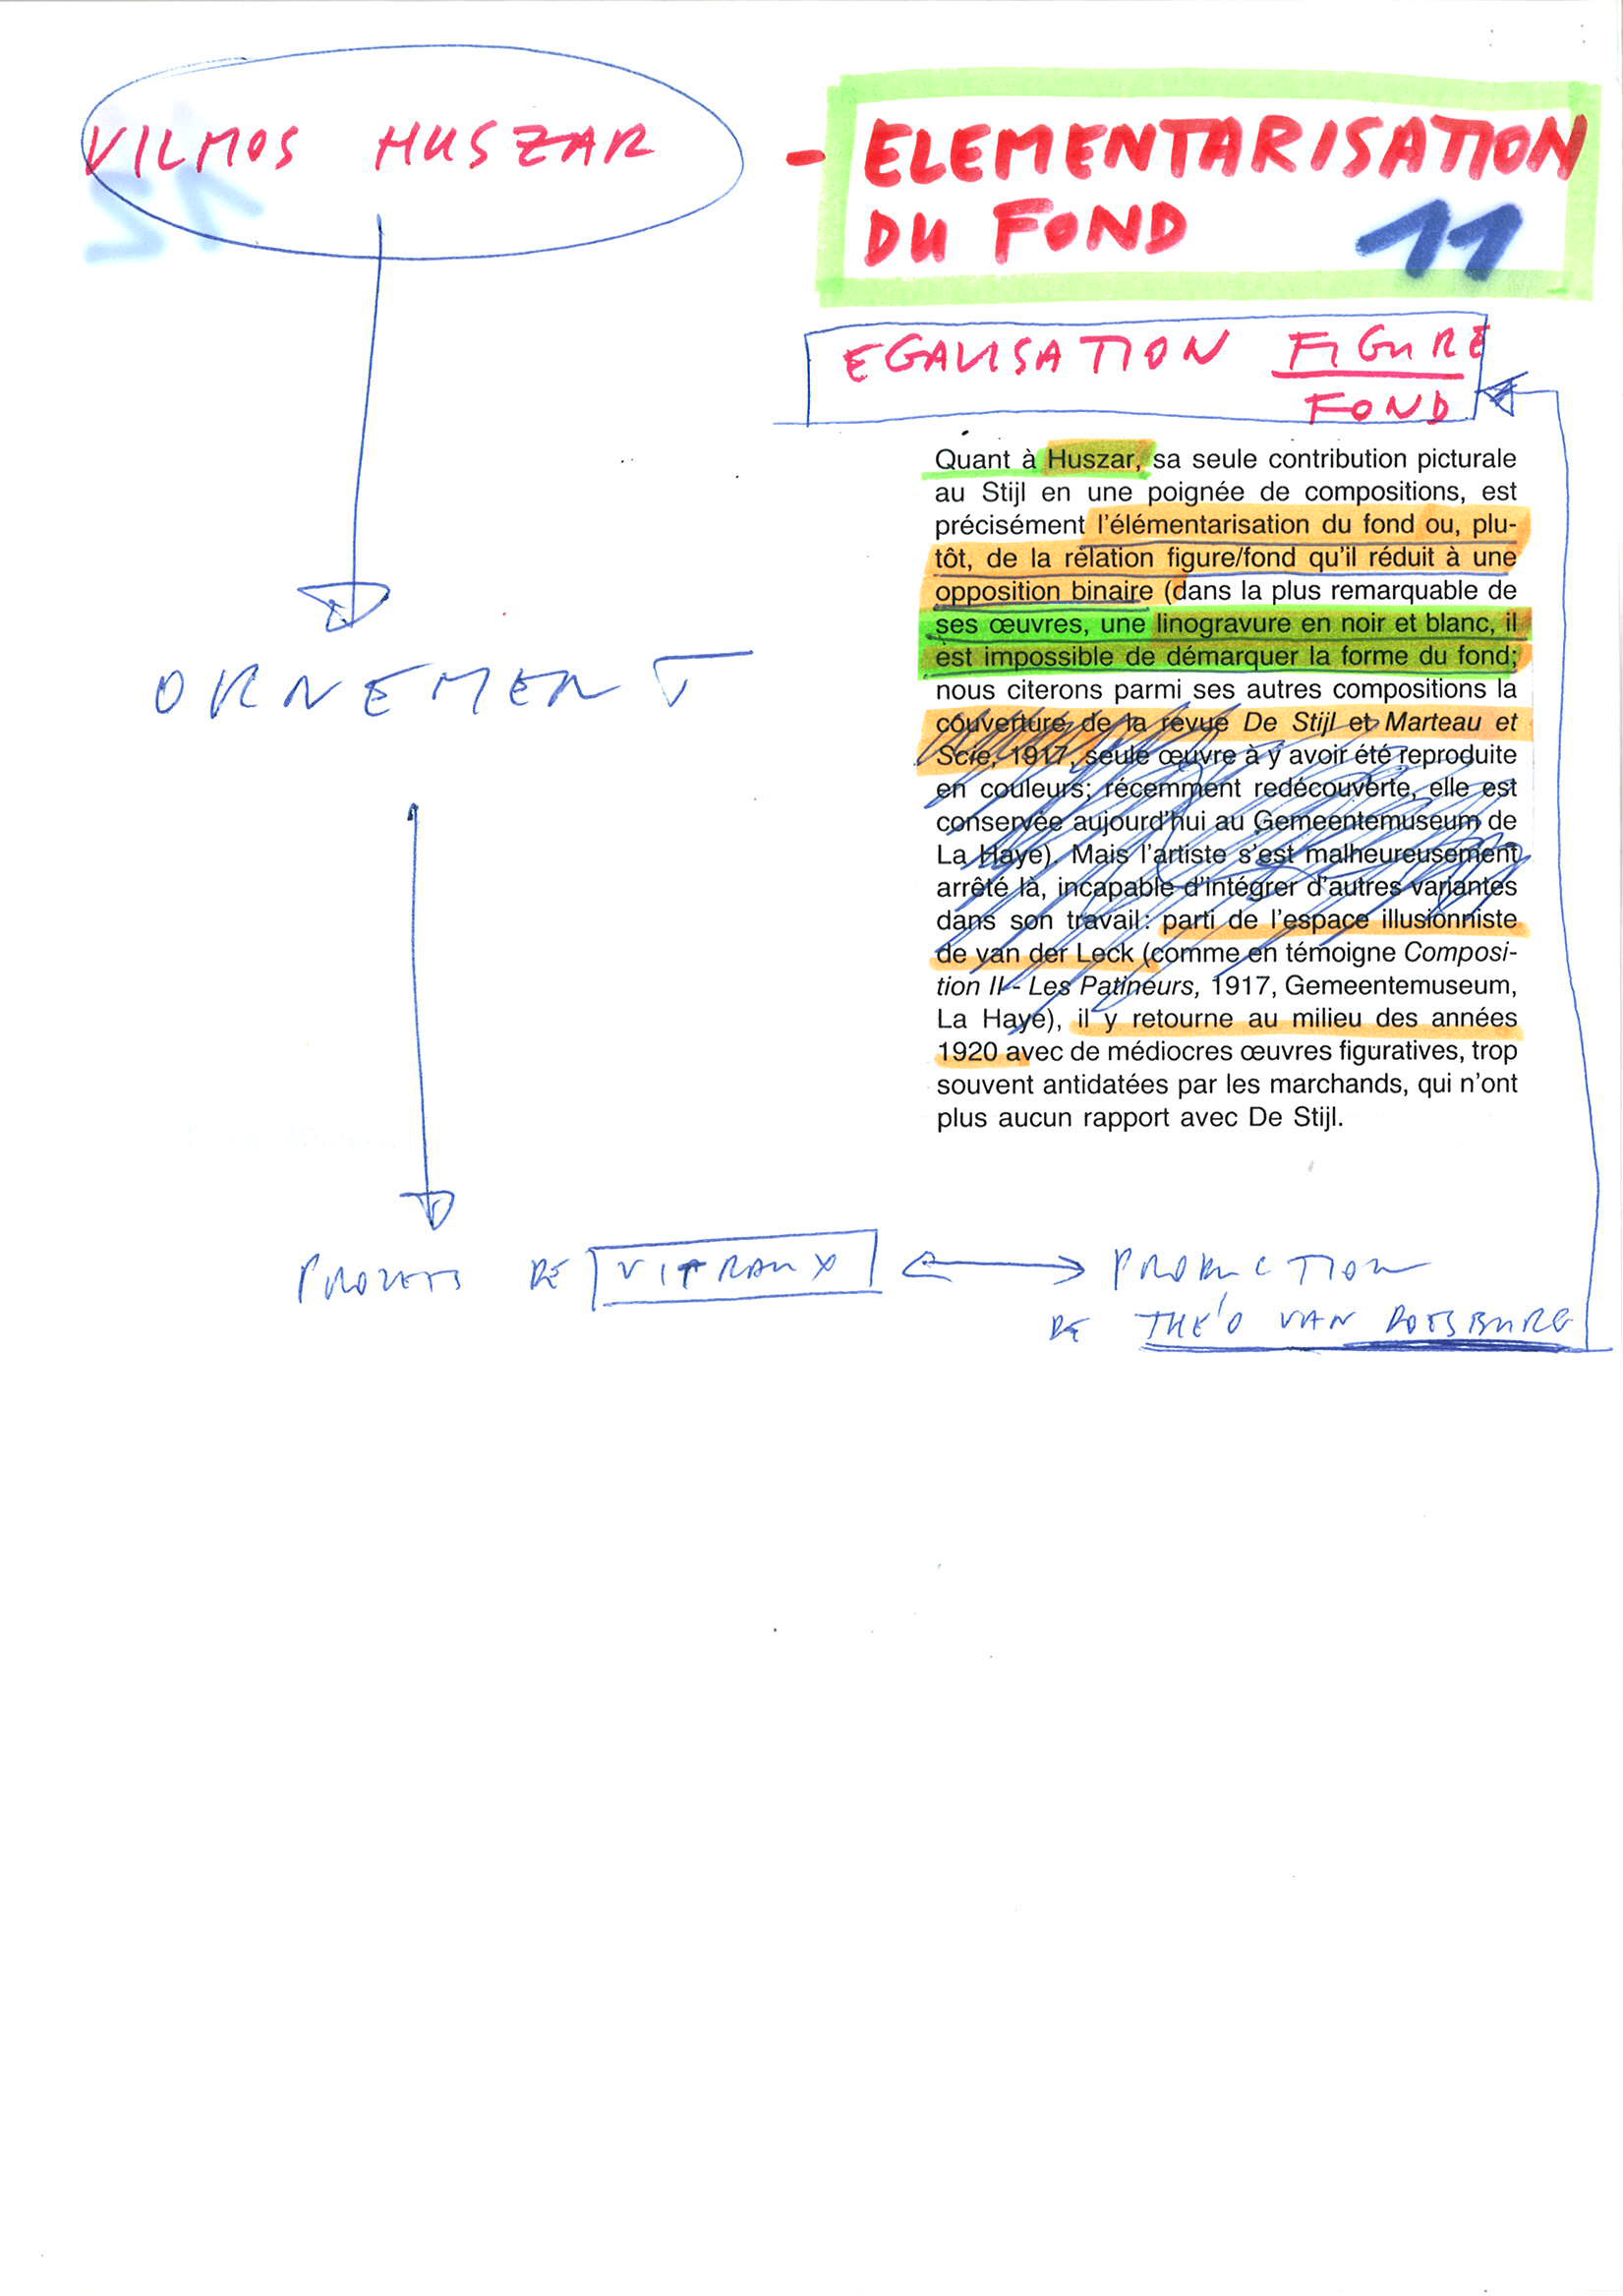 VILMOS HUSZAR
- ELEMENTARISATION
DU FOND 11
EGALISATION FIGURE
FOND
Quant à Huszar, sa seule contribution picturale
au Stijl en une poignée de compositions, est
précisément l'élémentarisation du fond ou, plu-
tôt, de la relation figure/fond qu'il réduit à une
opposition binaire (dans la plus remarquable de
ses œuvres, une linogravure en noir et blanc, il
est impossible de démarquer la forme du fond;
nous citerons parmi ses autres compositions la
couverture de la revue De Stijl et Marteau et
Scie, 1917, seule œuvre à y avoir été reproduite
en couleurs; récemment redécouverte, elle est
conservée aujourd'hui au Gemeentemuseum de
La Haye). Mais l'artiste s'est malheureusement
arrêté là, incapable d'intégrer d'autres variantes
dans son travail: parti de l'espace illusionniste
de van der Leck (comme en témoigne Composi-
tion II - Les Patineurs, 1917, Gemeentemuseum,
La Haye), il y retourne au milieu des années
1920 avec de médiocres œuvres figuratives, trop
souvent antidatées par les marchands, qui n'ont
plus aucun rapport avec De Stijl.
ORNEMENT
PROJETS DE VITRAUX
PRODUCTION
DE THÉO VAN DOESBURG